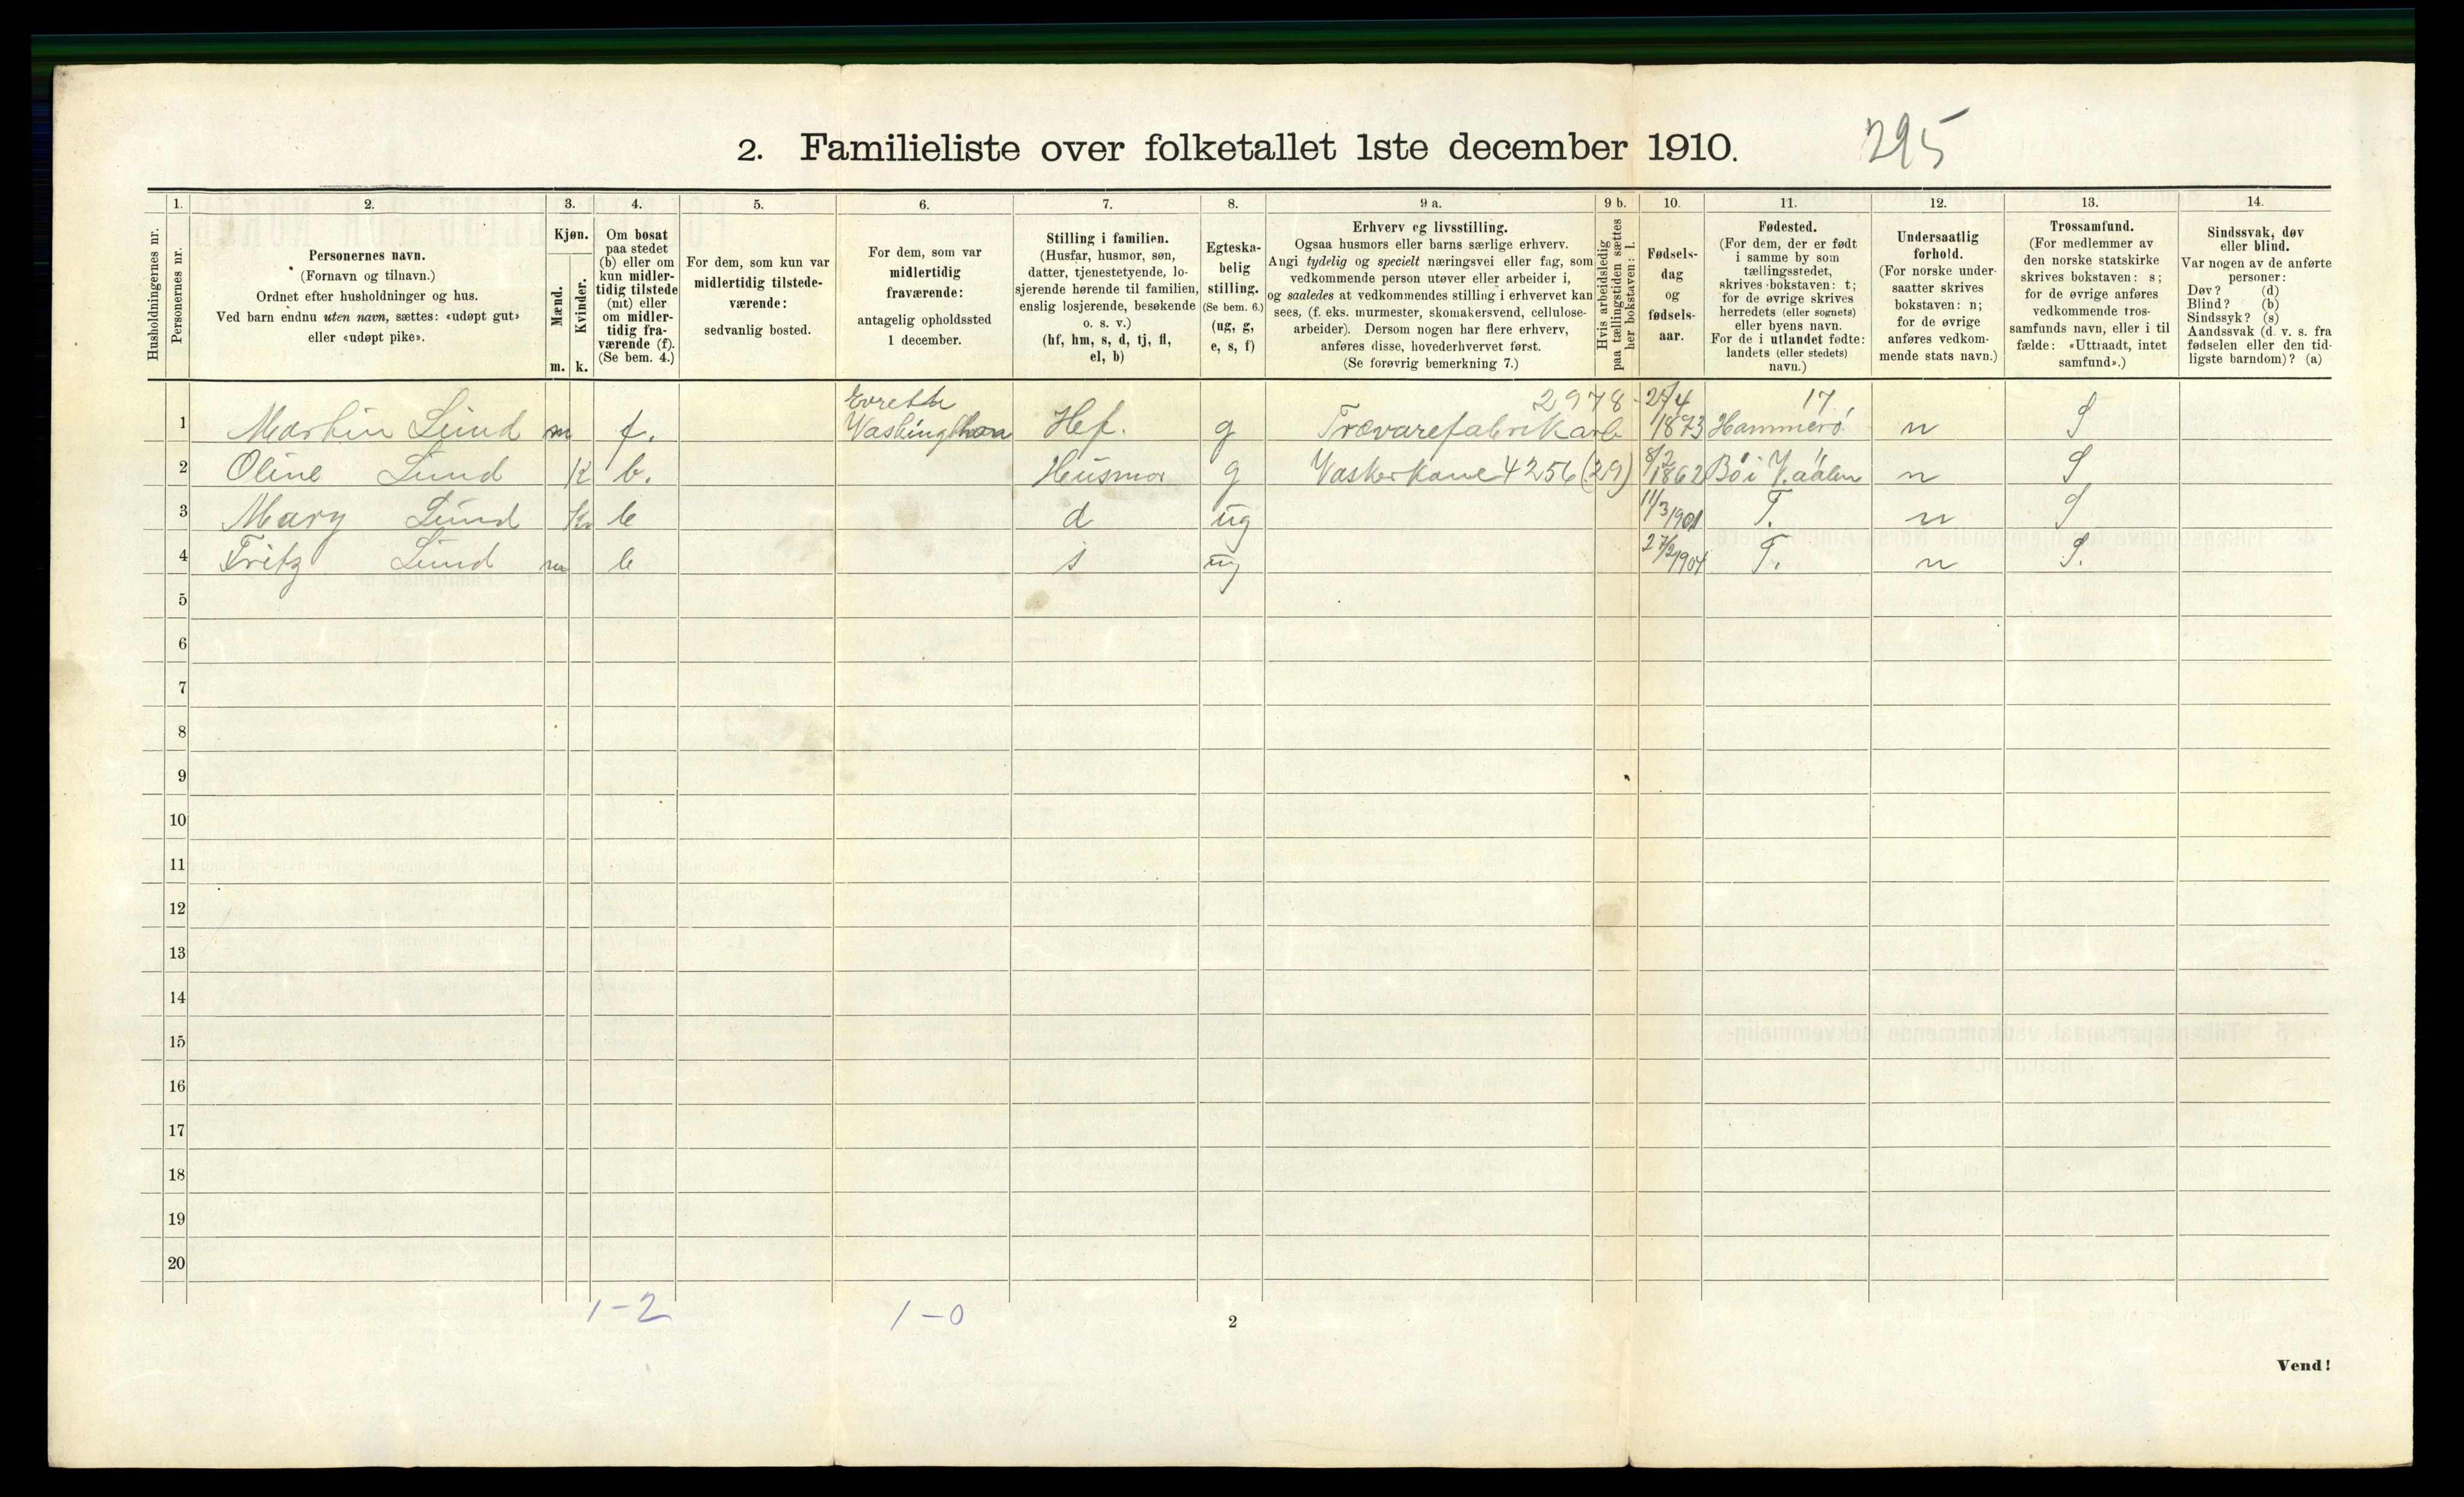 2. Familieliste over folketallet 1ste december 1910. 295
1. 2. 3. 4. 5. 6. 7. 8. 9 a. 9 b. 10. 11. 12. 13. 14.
Husholdningernes nr.
Personernes nr.
Personernes navn.
(Fornavn og tilnavn.)
Ordnet efter husholdninger og hus.
Ved barn endnu uten navn, sættes: «udøpt gut»
eller «udøpt pike».
Kjøn.
Mænd.
Kvinder.
m. k.
Om bosat
paa stedet
(b) eller om
kun midler-
tidig tilstede
(mt) eller
om midler-
tidig fra-
værende (f).
(Se bem. 4.)
For dem, som kun var
midlertidig tilstede-
værende:
sedvanlig bosted.
For dem, som var
midlertidig
fraværende:
antagelig opholdssted
1 december.
Stilling i familien.
(Husfar, husmor, søn,
datter, tjenestetyende, lo-
sjerende hørende til familien,
enslig losjerende, besøkende
o. s. v.)
(hf, hm, s, d, tj, fl,
el, b)
Egteska-
belig
stilling.
(Se bem. 6.)
(ug, g,
e, s, f)
Erhverv og livsstilling.
Ogsaa husmors eller barns særlige erhverv.
Angi tydelig og specielt næringsvei eller fag, som
vedkommende person utøver eller arbeider i,
og saaledes at vedkommendes stilling i erhvervet kan
sees, (f. eks. murmester, skomakersvend, cellulose-
arbeider). Dersom nogen har flere erhverv,
anføres disse, hovederhvervet først.
(Se forøvrig bemerkning 7.)
Hvis arbeidsledig
paa tællingstiden sættes
her bokstaven: l.
Fødsels-
dag
og
fødsels-
aar.
Fødested.
(For dem, der er født
i samme by som
tællingsstedet,
skrives bokstaven: t;
for de øvrige skrives
herredets (eller sognets)
eller byens navn.
For de i utlandet fødte:
landets (eller stedets)
navn.)
Undersaatlig
forhold.
(For norske under-
saatter skrives
bokstaven: n;
for de øvrige
anføres vedkom-
mende stats navn.)
Trossamfund.
(For medlemmer av
den norske statskirke
skrives bokstaven: s;
for de øvrige anføres
vedkommende tros-
samfunds navn, eller i til
fælde: «Uttraadt, intet
samfund».)
Sindssvak, døv
eller blind.
Var nogen av de anførte
personer:
Døv? (d)
Blind? (b)
Sindssyk? (s)
Aandssvak (d. v. s. fra
fødselen eller den tid-
ligste barndom)? (a)
Evreth 2978 27/4 17
1 Martin Lund m f. Washingthon Hf. g Trævarefabrikarb 1873 Hammerø n S
2 Oline Lund K b. Husmor g Vaskerkone 4256 (29) 8/2 1862 Bø i V.aalen n S
3 Mary Lund K b d ug 11/3 1901 T. n S
4 Fritz Lund m b s ug 27/2 1904 T. n S.
5
6
7
8
9
10
11
12
13
14
15
16
17
18
19
20
1-2 1-0
2
Vend!